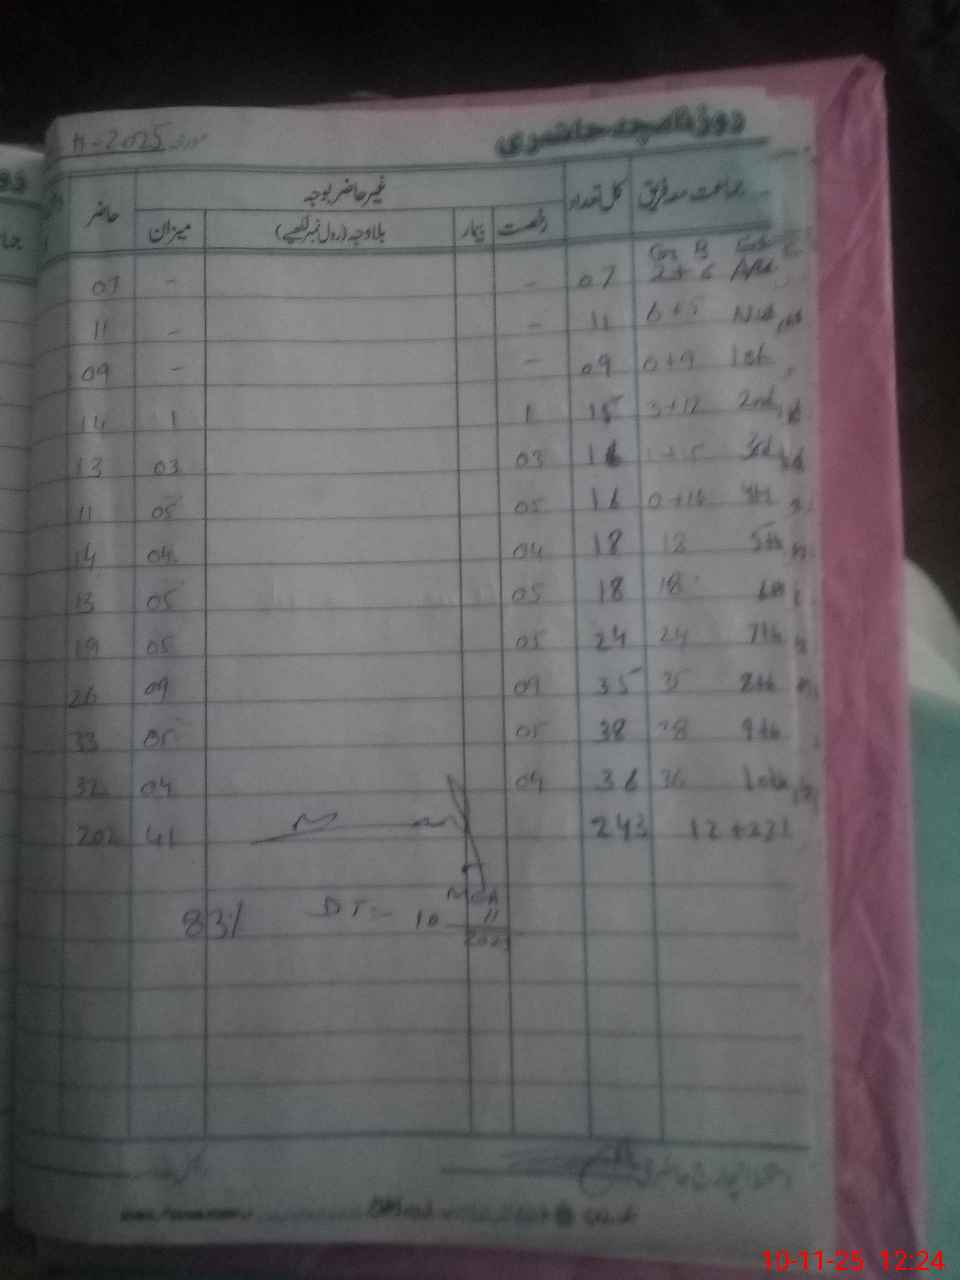 روزنامچہ حاضری
مورخہ 11-2025
جماعت معہ فریق کل تعداد غیر حاضر بوجہ حاضر
رخصت بیمار بلاوجہ (رول نمبر لکھیے) میزان
07 - - 07
6+5 11 - - 11
1st 0+9 09 - - 09
2nd 3+12 15 1 1 14
3rd 16 03 03 13
0+16 16 05 05 11
5th 18 18 04 04 14
18 18 05 05 13
7th 24 24 05 05 19
8th 35 35 09 09 26
9th 38 38 05 05 33
10th 36 36 04 04 32
12+231 243 41 202
83%
DT:- 10
11
2025
10-11-25 12:24